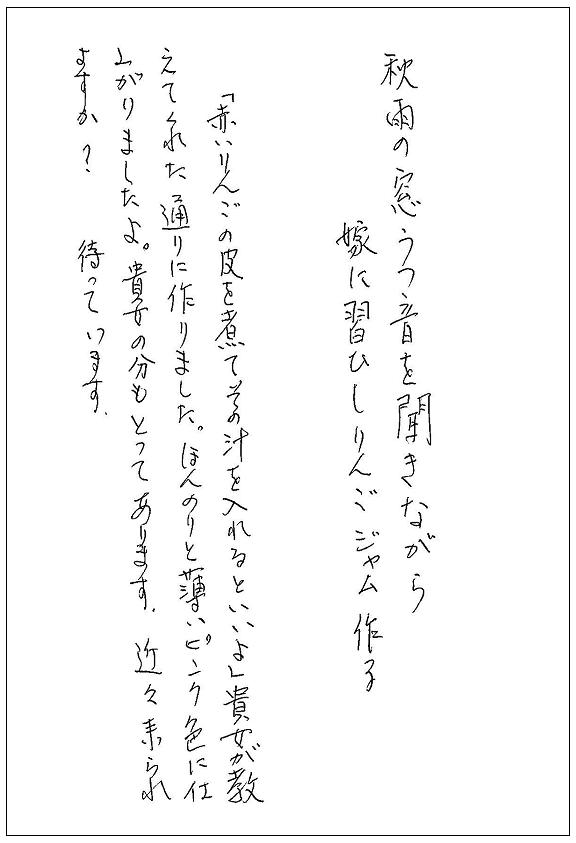 秋雨の窓うつ音を聞きながら
嫁に習ひしりんごジャム作る
「赤いりんごの皮を煮てその汁を入れるといいよ」貴女が教
えてくれた通りに作りました。ほんのりと薄いピンク色に仕
上がりましたよ。貴女の分もとってあります。近々来られ
ますか？　待っています。